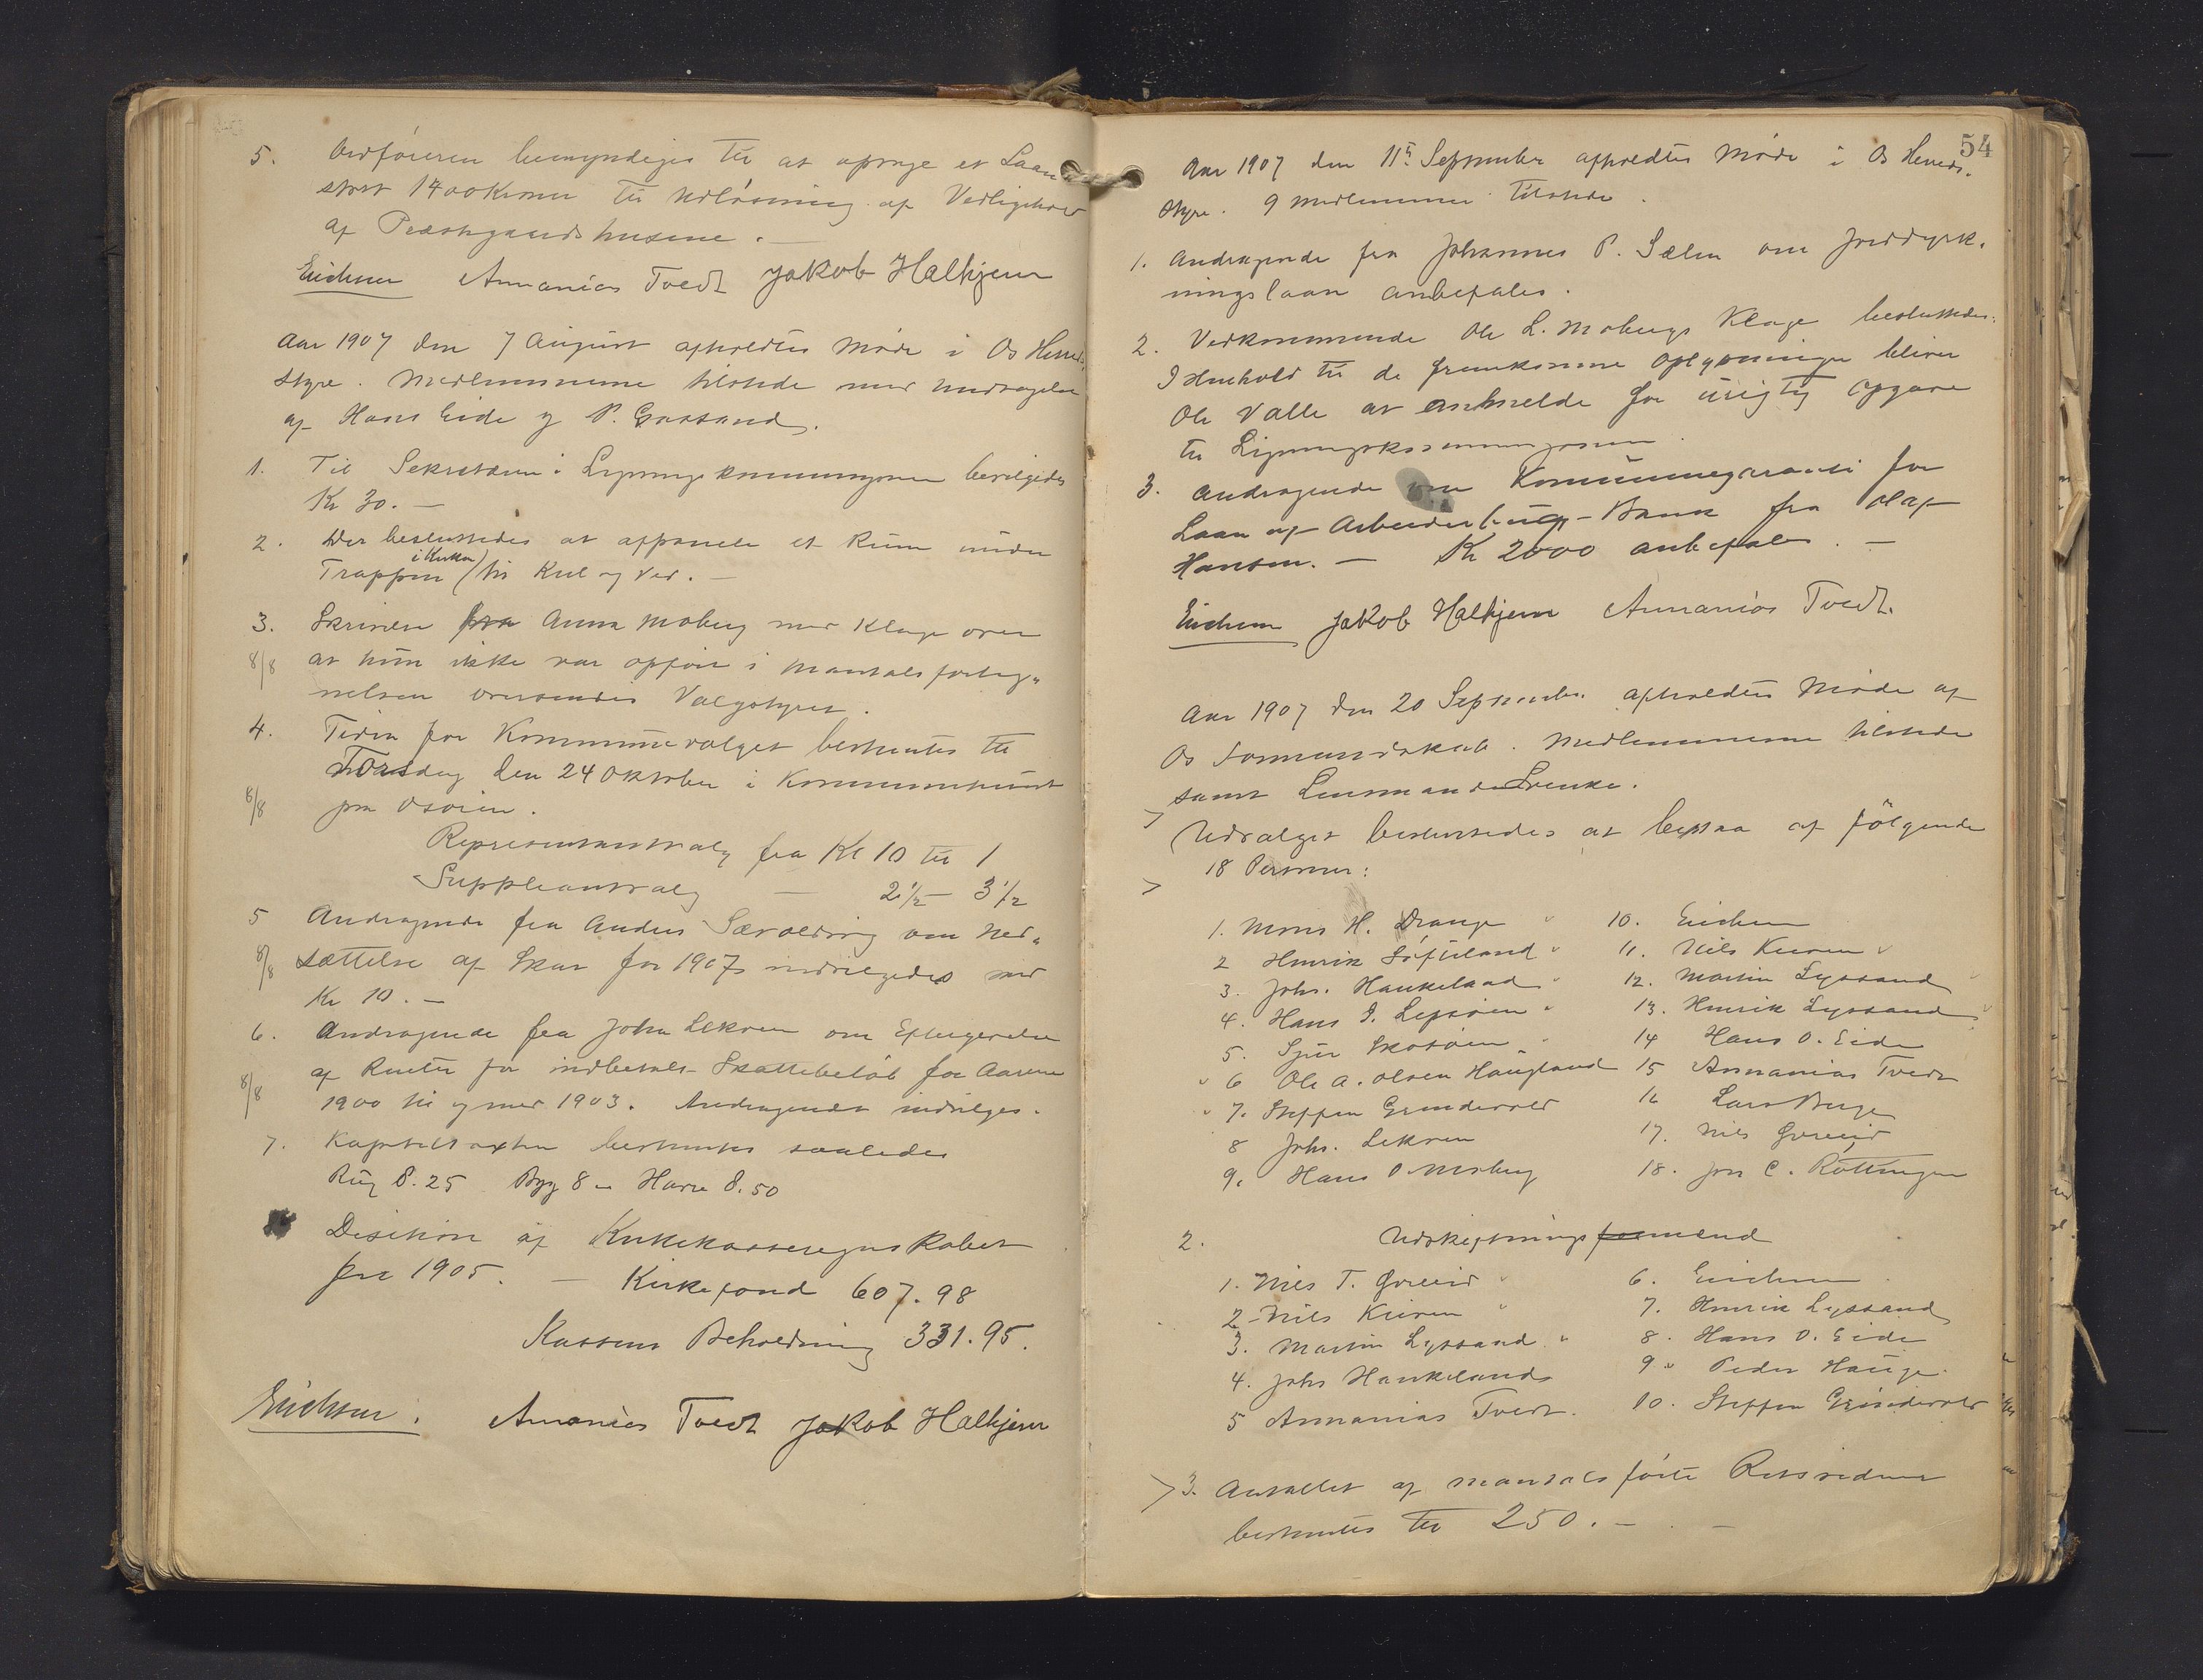 5. Ordføreren bemyndiges til at optage et Laan
stort 1400 Kroner til Udløsning af Vedligehold
af Præstegaardshusene. —
Erichsen Annanias Tvedt Jakob Halhjem
Aar 1907 den 7 August afholdtes Møde i Os Herreds,
styre. Medlemmerne tilstede med Undtagelse
af Hans Eide og P. Graasand.
1. Til Sekretæren i Ligningskommissionen bevilgedes
Kr 30. —
2. Der besluttedes at afpanele et Rum under
i Kirken
Trappen til Kul og Ved. —
3. Skrivelse fra Anna Moberg med Klage over
8/8 at hun ikke var opført i Mantalsforteg„
nelsen oversendes Valgstyret.
4. Tiden for Kommunevalget bestemtes til
Torsdag den 24 Oktober i Kommunehuset
8/8 paa Osøren.
Representantvalg fra Kl 10 til 1
Suppleantvalg — 2½ – 3½
5 Andragende fra Anders Særvoldsvig om Ned„
8/8 sættelse af Skat for 1907 indvilgedes med
Kr 10. —
6. Andragende fra John Lekven om Eftergivelse
8/8 af Renter for indbetalt Skattebeløb for Aarene
1900 til og med 1903. Andragendet indvilges.
7. Kapitelstaxten bestemtes saaledes
Rug 8.25 Byg 8 – Havre 8.50
Desision af Kirkekasseregnskabet
for 1905. — Kirkefond 607.98
Kassens Beholdning 331.95.
Erichsen. Ananias Tvedt Jakob Halhjem
54
Aar 1907 den 11te September afholdtes Møde i Os Herreds,
styre. 9 Medlemmer tilstede.
1. Andragende fra Johannes P. Sælen om Jorddyrk,
ningslaan anbefales.
2. Vedkommende Ole L. Mobergs Klage besluttedes:
I Henhold til de fremkomne Oplysninger bliver
Ole Valle at anmelde for urigtig Opgave
til Ligningskommissionen.
3. Andragende om Kommunegaranti for
Laan af Arbeiderbrug-Bank fra Olaf
Hansen. — Kr 2000 anbefales. —
Erichsen Jakob Halhjem Annanias Tvedt.
Aar 1907 den 20 September afholdtes Møde af
Os Formandskab. Medlemmerne tilstede
samt Lensmand
> Udvalget besluttedes at bestaa af følgende
> 18 Personer:
1. Mons H. Drange
2 Henrik Søfteland
3. Johs. Haukeland
4. Hans J. Lepsøen
5. Sjur Skotøien
6 Ole A. Olsen Haugland
7. Steffen Grindevold
8 Johs. Lekven
9. Hans O Moberg
10. Erichsen
11. Nils Kuven
12. Martin Lyssand
13. Henrik Lyssand
14 Hans O. Eide
15 Annanias Tvedt
16 Lars Berge
17. Nils Gjøveid
18. Jon C. Røttingen
2. Udskiftningsformænd
1. Nils T. Gjøveid
2 – Nils Kuven
3. Martin Lyssand
4. Johs Haukeland
5 Annanias Tvedt.
6. Erichsen
7. Henrik Lyssand
8. Hans O. Eide
9. Peder Hauge
10. Steffen Grindevold
> 3. Antallet af mantalsførte Retsvidner
bestemtes til 250. —